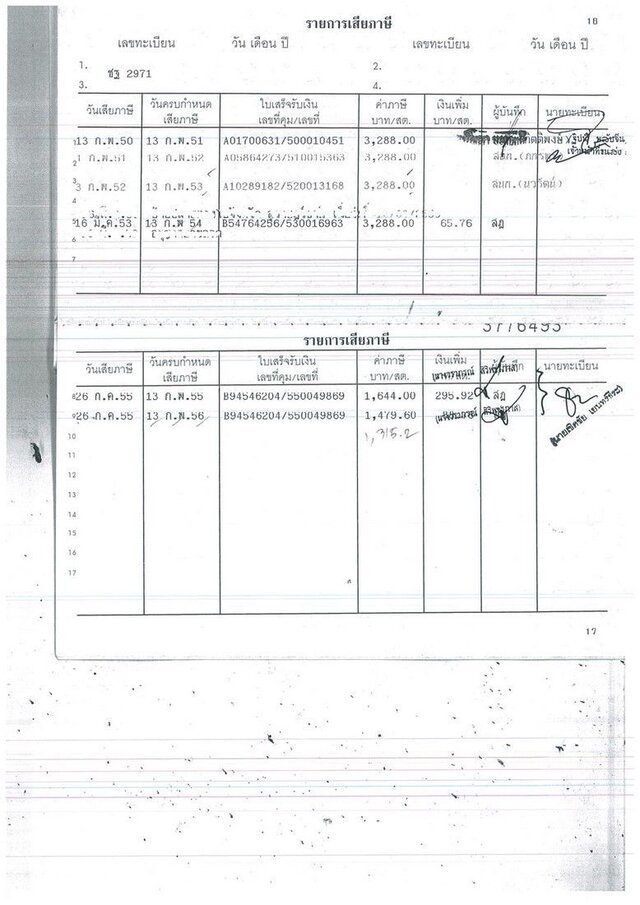 รายการเสียภาษี 16
เลขทะเบียน วัน เดือน ปี เลขทะเบียน วัน เดือน ปี
1. ชฐ 2971 2.
3. 4.
วันเสียภาษี วันครบกำหนด เสียภาษี ใบเสร็จรับเงิน เลขที่คุม/เลขที่ ค่าภาษี บาท/สต. เงินเพิ่ม บาท/สต. ผู้บันทึก นายทะเบียน
13 ก.พ.50 13 ก.พ.51 A01700631/500010451 3,288.00
2 1 ก.พ.51 13 ก.พ.52 A05864273/510015363 3,288.00
3 ก.พ.52 13 ก.พ.53 A10289182/520013168 3,288.00 สมก.(นวรัตน์)
16 มี.ค.53 13 ก.พ 54 B54764256/530016963 3,288.00 65.76 สฎ
6
7
3776493
รายการเสียภาษี
วันเสียภาษี วันครบกำหนด เสียภาษี ใบเสร็จรับเงิน เลขที่คุม/เลขที่ ค่าภาษี บาท/สต. เงินเพิ่ม สต. นายทะเบียน
26 ก.ค.55 13 ก.พ.55 B94546204/550049869 1,644.00 295.92 สฎ
26 ก.ค.55 13 ก.พ.56 B94546204/550049869 1,479.60
10 1,315.2
11
12
13
14
15
16
17
17